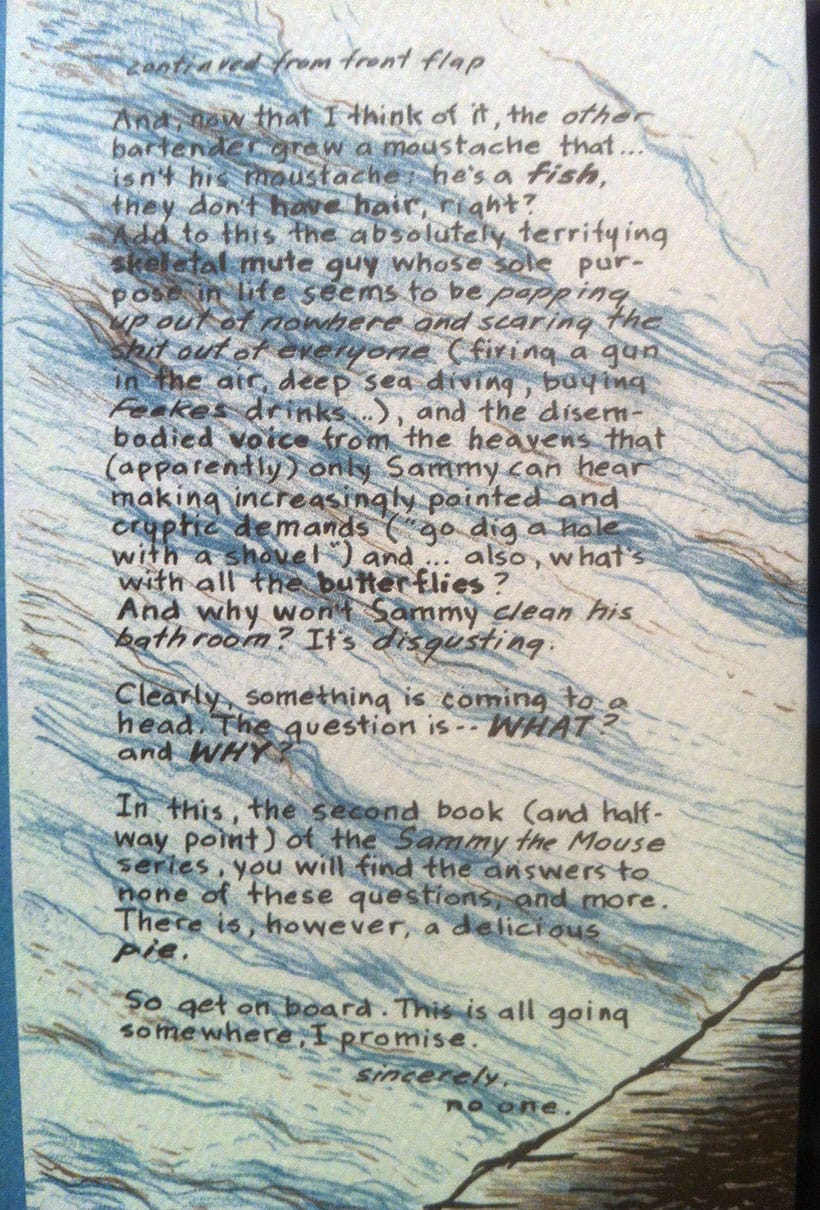 continued from front flap
And, now that I think of it, the other
bartender grew a moustache that...
isn't his moustache: he's a fish,
they don't have hair, right?
Add to this the absolutely terrifying
skeletal mute guy whose sole pur-
pose in life seems to be popping
up out of nowhere and scaring the
shit out of everyone (firing a gun
in the air, deep sea diving, buying
Feekes drinks...), and the disem-
bodied voice from the heavens that
(apparently) only Sammy can hear
making increasingly pointed and
cryptic demands ("go dig a hole
with a shovel") and... also, what's
with all the butterflies?
And why won't Sammy clean his
bathroom? It's disgusting.
Clearly, something is coming to a
head. The question is-- WHAT?
and WHY?
In this, the second book (and half-
way point) of the Sammy the Mouse
series, you will find the answers to
none of these questions, and more.
There is, however, a delicious
pie.
So get on board. This is all going
somewhere, I promise.
sincerely,
no one.